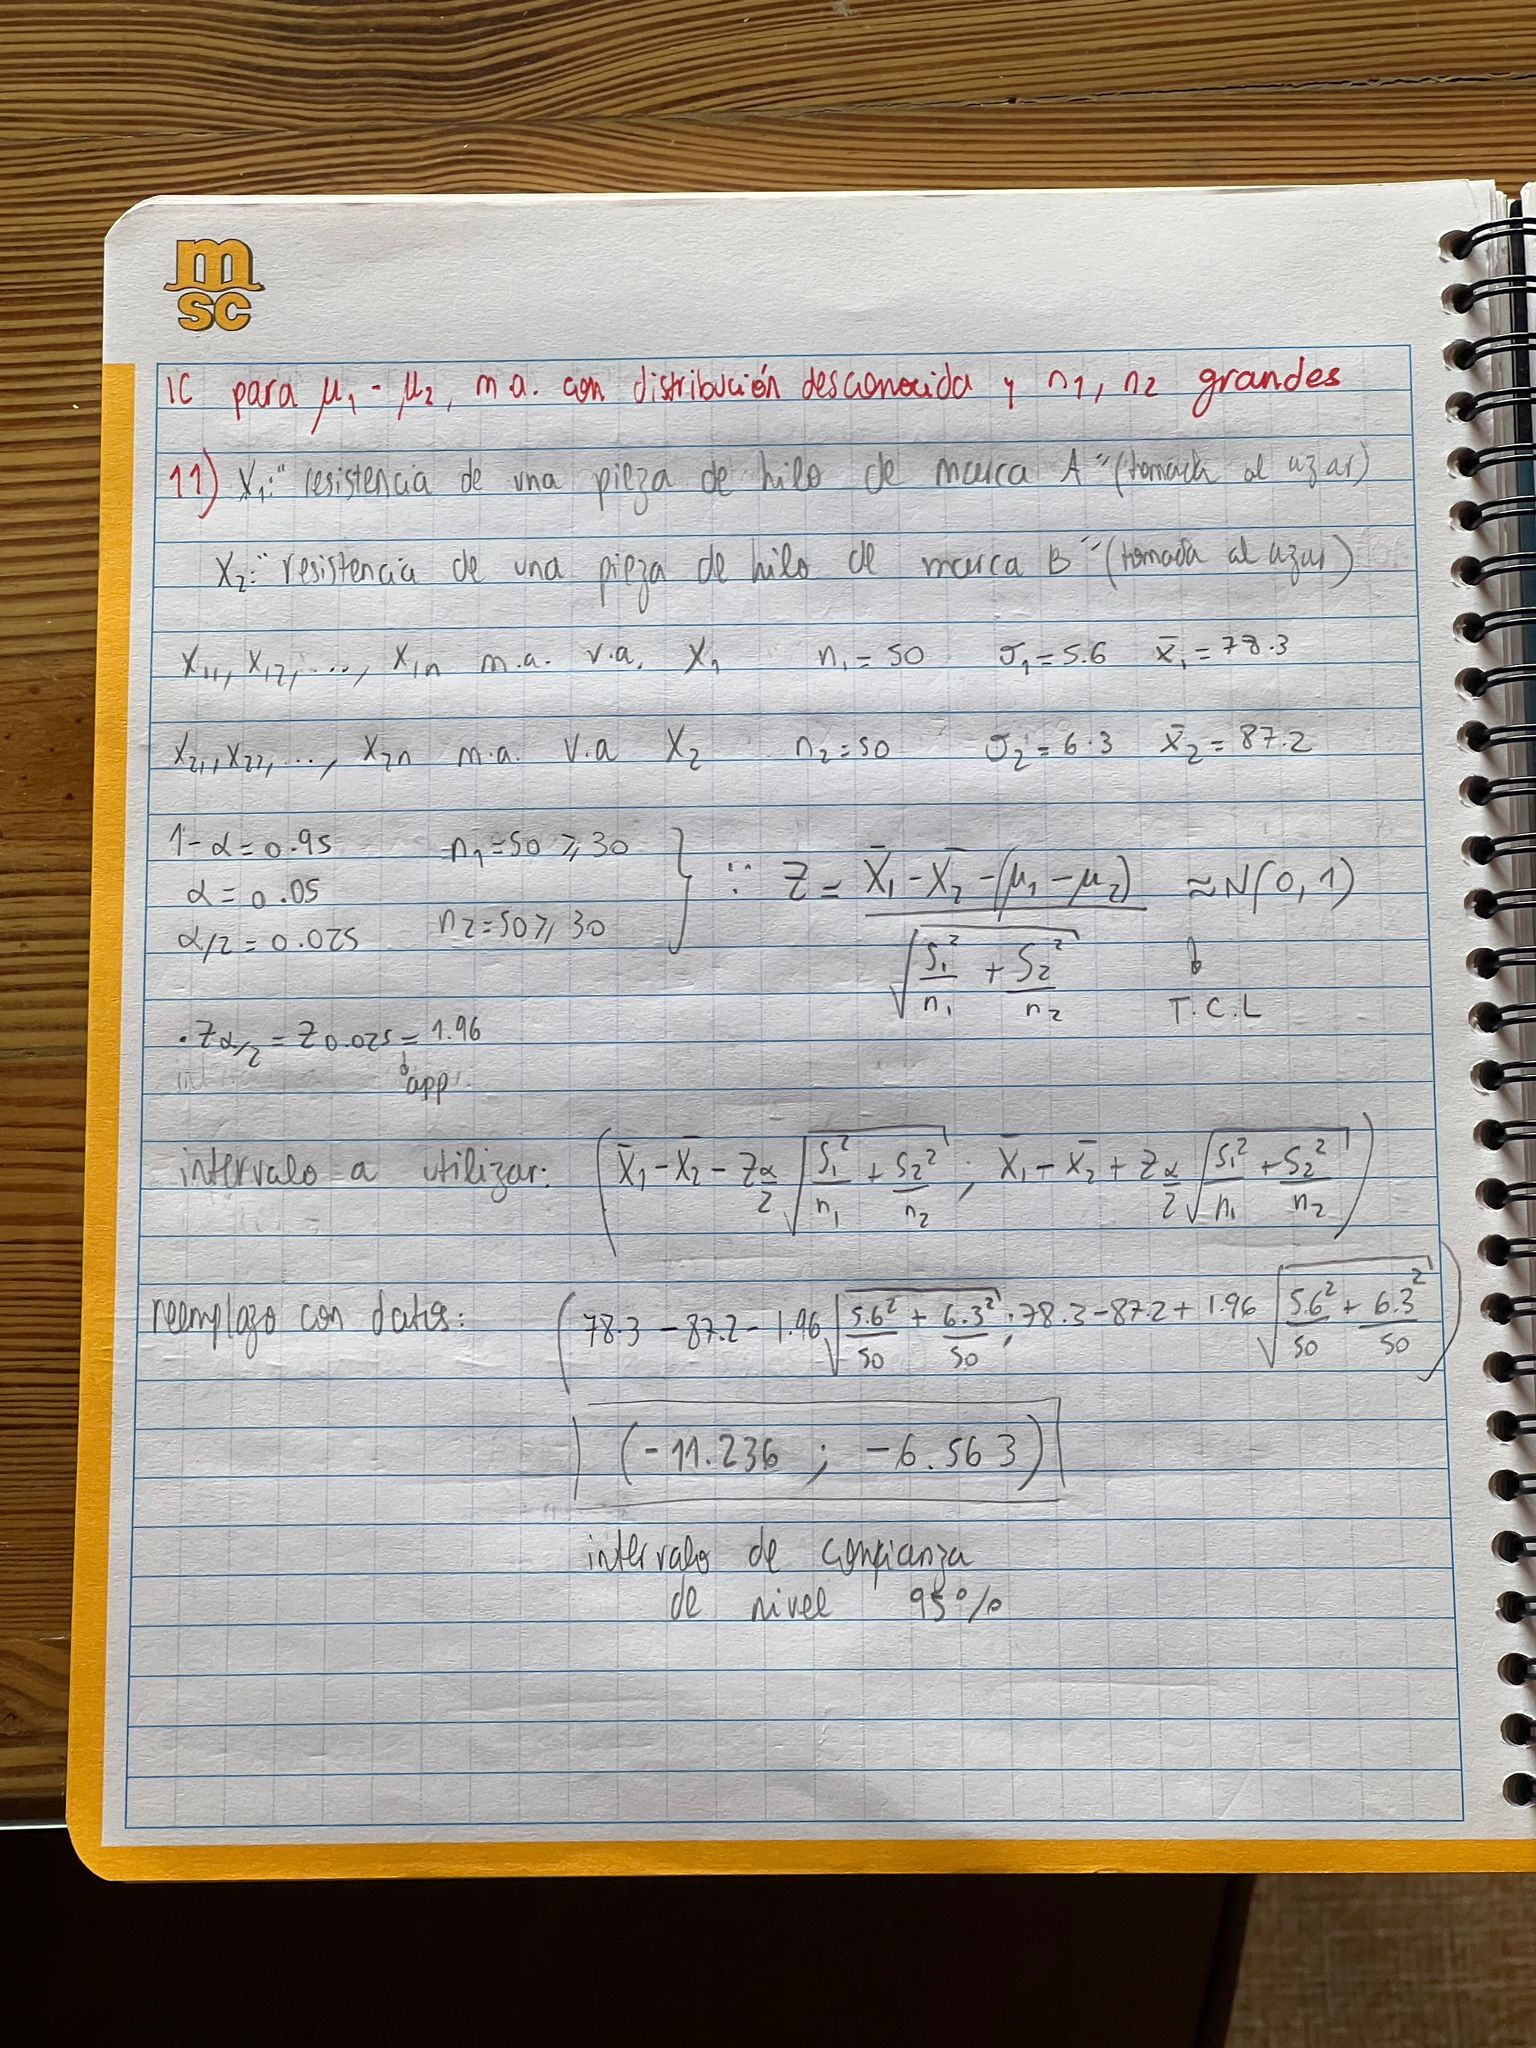 m
sc
IC para μ₁ - μ₂, m a. con distribución desconocida y n1, n2 grandes
11) X₁: "resistencia de una pieza de hilo de marca A" (tomada al azar)
X₂: "resistencia de una pieza de hilo de marca B" (tomada al azar)
X₁₁, X₁₂, ..., X₁n m.a. v.a. X₁ n₁ = 50 σ₁ = 5.6 x̄₁ = 78.3
X₂₁, X₂₂, ..., X₂n m.a. v.a X₂ n₂ = 50 σ₂ = 6.3 x̄₂ = 87.2
1-α = 0.95 n₁ = 50 ≥ 30
α = 0.05 } ∵ Z = (X̄₁ - X̄₂ - (μ₁ - μ₂)) / √(S₁²/n₁ + S₂²/n₂) ≈ N(0, 1)
α/2 = 0.025 n₂ = 50 ≥ 30
T.C.L
• Zα/2 = Z0.025 = 1.96
app
intervalo a utilizar: (X̄₁ - X̄₂ - Zα/2 √(S₁²/n₁ + S₂²/n₂) ; X̄₁ - X̄₂ + Zα/2 √(S₁²/n₁ + S₂²/n₂))
reemplazo con datos: (78.3 - 87.2 - 1.96 √(5.6²/50 + 6.3²/50) ; 78.3 - 87.2 + 1.96 √(5.6²/50 + 6.3²/50))
(-11.236 ; -6.563)
intervalo de confianza
de nivel 95%